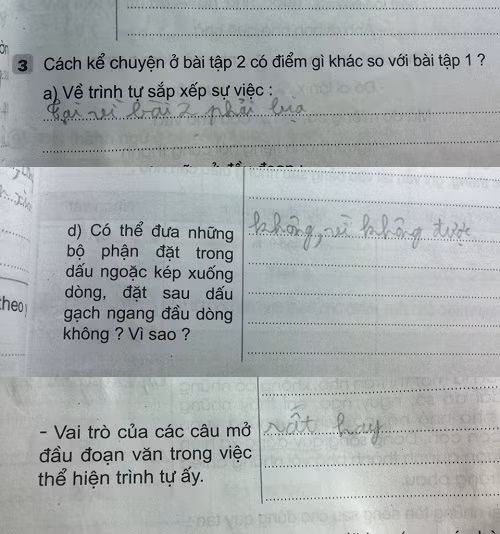 3 Cách kể chuyện ở bài tập 2 có điểm gì khác so với bài tập 1 ?
a) Về trình tự sắp xếp sự việc :
Tại vì bài 2 phải lựa
theo
d) Có thể đưa những không, vì không được
bộ phận đặt trong
dấu ngoặc kép xuống
dòng, đặt sau dấu
gạch ngang đầu dòng
không ? Vì sao ?
- Vai trò của các câu mở rất hay
đầu đoạn văn trong việc
thể hiện trình tự ấy.